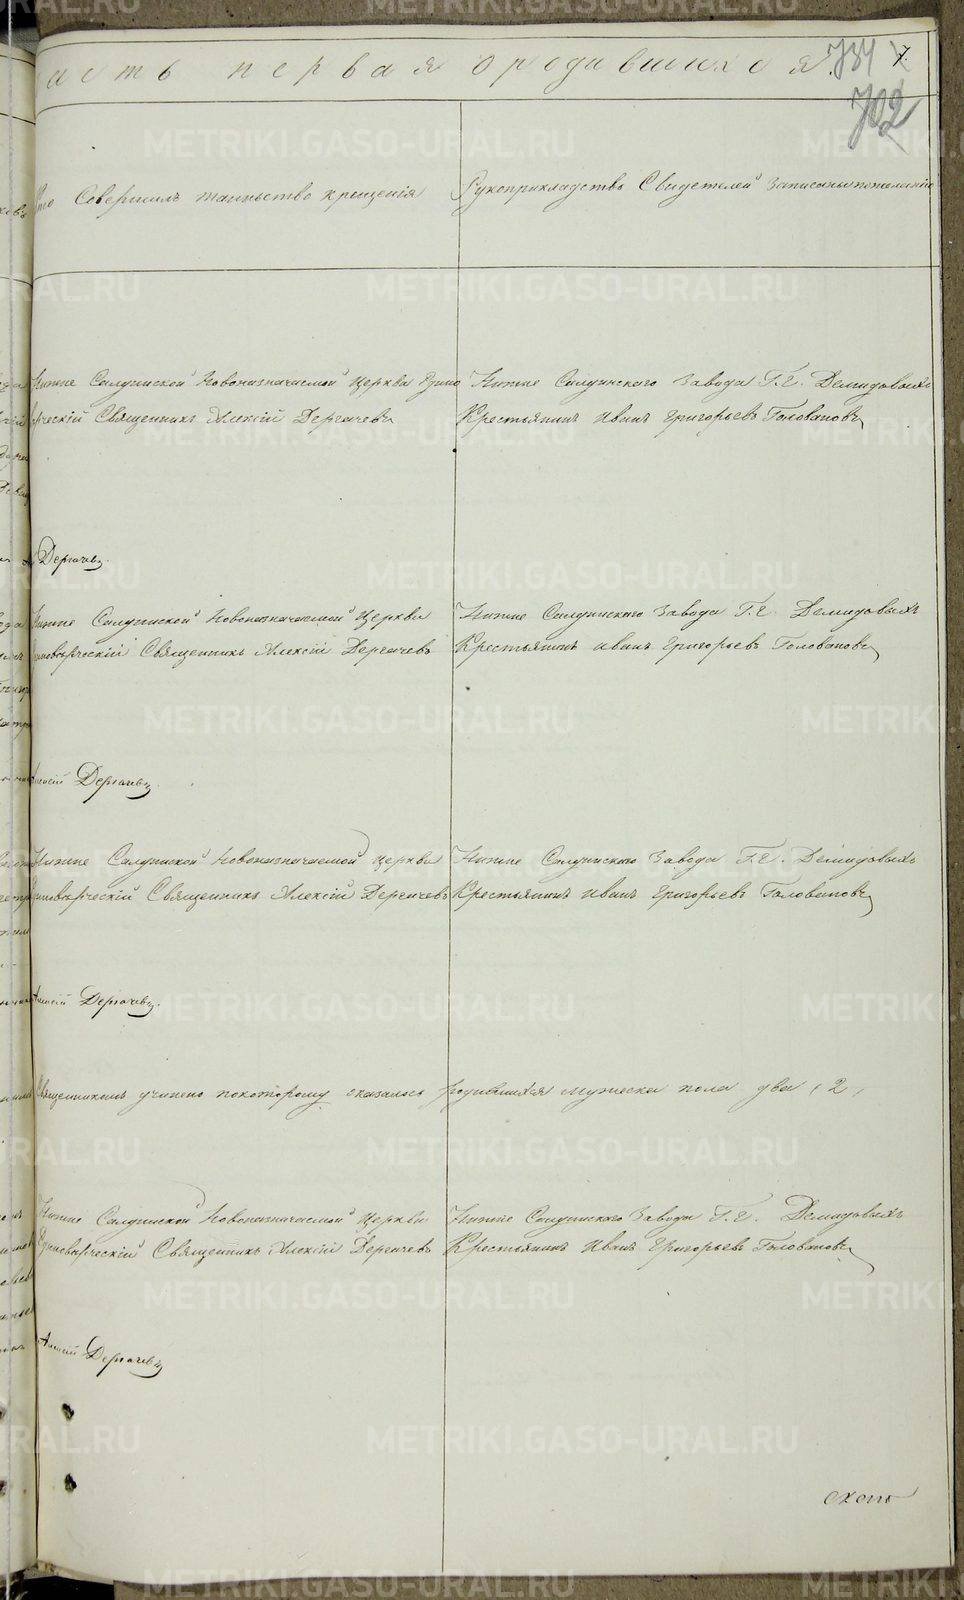 асть первая ородившихся. 734 7.
702
Кто Совершилъ таинство крещенія
Рукоприкладство Свидетелей записано пожеланію
Нижне Салдинской Новоназначаемой церкви Едино
верческій Священникъ Алексій Дергачевъ
Нижне Салдинского Завода Г.Г. Демидовыхъ
Крестьянинъ Иванъ Григорьевъ Головановъ
Дергачевъ.
Нижне Салдинской Новоназначаемой Церкви
Единоверческій Священникъ Алексій Дергачевъ
Нижне Салдинского Завода Г.Г. Демидовыхъ
Крестьянинъ Иванъ Григорьевъ Головановъ
Алексій Дергачевъ.
Нижне Салдинской Новоназначаемой церкви
Единоверческій Священникъ Алексій Дергачевъ
Нижне Салдинского Завода Г.Г. Демидовыхъ
Крестьянинъ Иванъ Григорьевъ Головановъ
Алексій Дергачевъ.
Священникомъ учинено покоторому оказалось родившихся мужеска пола два (2)
Нижне Салдинской Новоназначаемой Церкви
Единоверческій Священникъ Алексій Дергачевъ
Нижне Салдинского Завода Г.Г. Демидовыхъ
Крестьянинъ Иванъ Григорьевъ Головановъ
Алексій Дергачевъ
METRIKI.GASO-URAL.RU